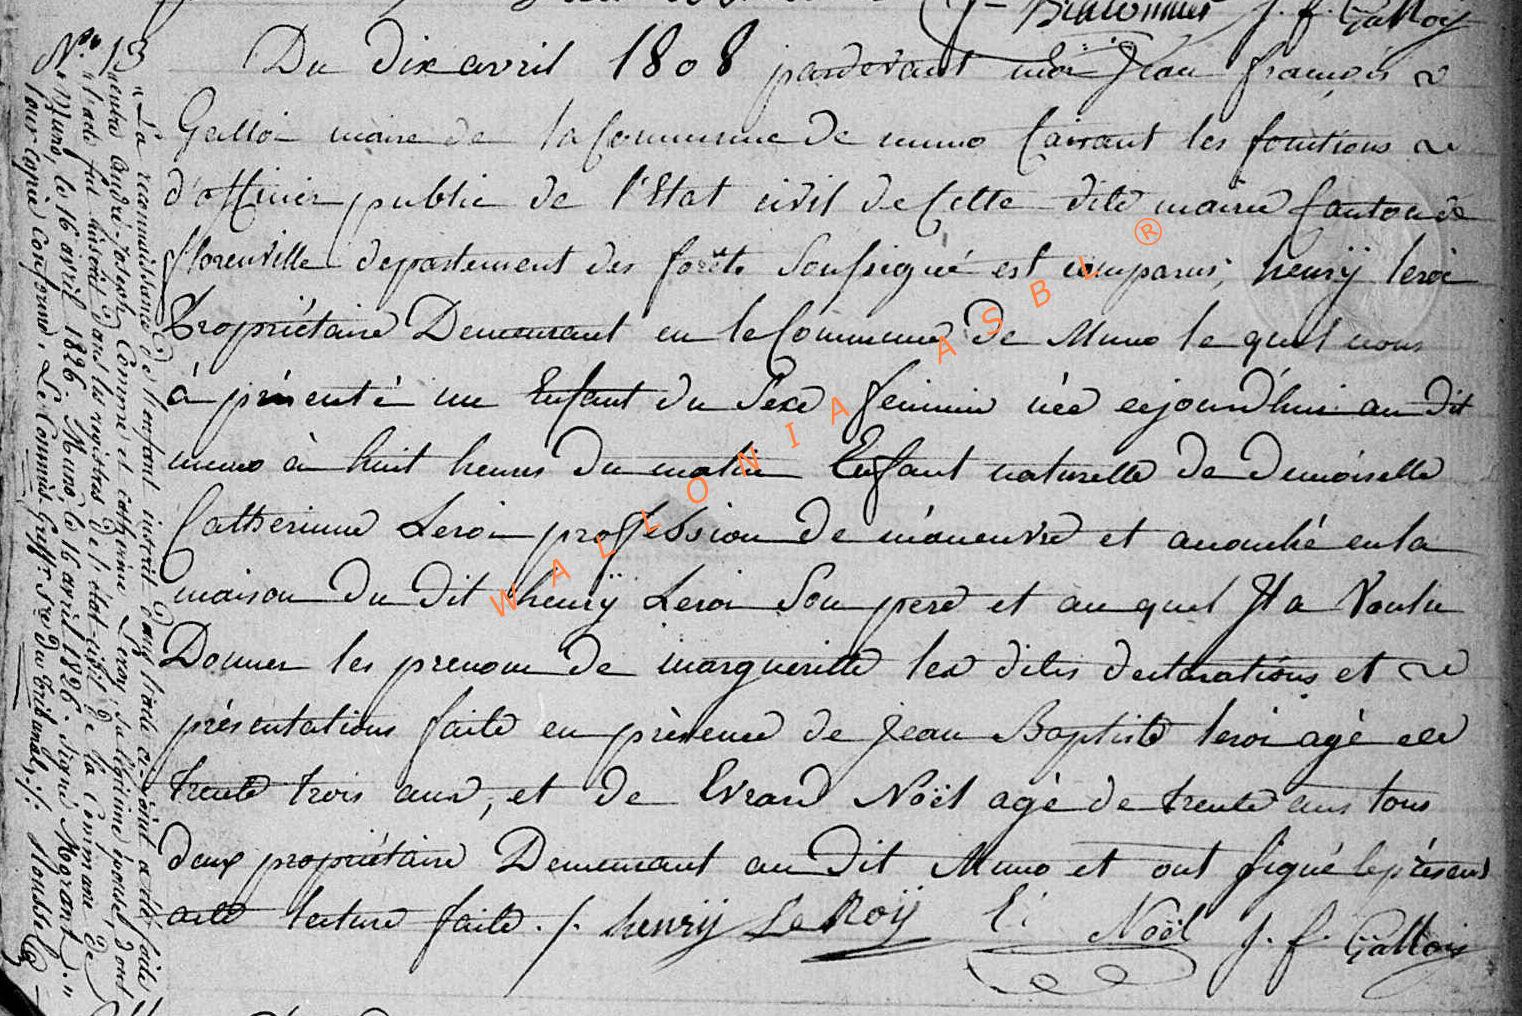 J. f. Gallois
N.° 13
Du dix avril 1808 pardevant moi Jean françois
Galloi maire de la Commune de muno faisant les fonctions
d'officier public de l'Etat civil de Cette dite mairie Canton de
florenville departement des forêts Soussigné est comparus, henrÿ leroi
Propriétaire Demeurant en la Commune De Muno le quel nous
à présenté un Enfant du Sexe feminin née cejourd'hui au dit
muno à huit heures du matin Enfant naturelle de demoiselle
Catherinne Leroi profession de máneuvre et accouché en la
maison du dit henrÿ Leroi Son pere et au quel Jl a Voulu
Donner les prenom de margueritte les dites declarations et
présentations faite en présence de jean Baptiste leroi agé de
trente trois ans, et de Evrard Noël agé de trente ans tous
deux propriétaire Demeurant au dit Muno et ont signé le présent
acte lecture faite ./. henrÿ Le Roÿ E: Noël J. f. Gallois
"La reconnaissance de l'enfant inscrit dans l'acte ci-joint a été faite
"entre André-Joseph et catherine Leroy, sa légitime épouse, dont
"l'acte fut inscrit dans les registres de l'état-civil de la Commune de
"Muno, le 16 avril 1826. Muno, le 16 avril 1826. Signé Morant."
Pour Copie Conforme, Le Commis-Greff: du tribunal ./.
WALLONIA ASBL ®